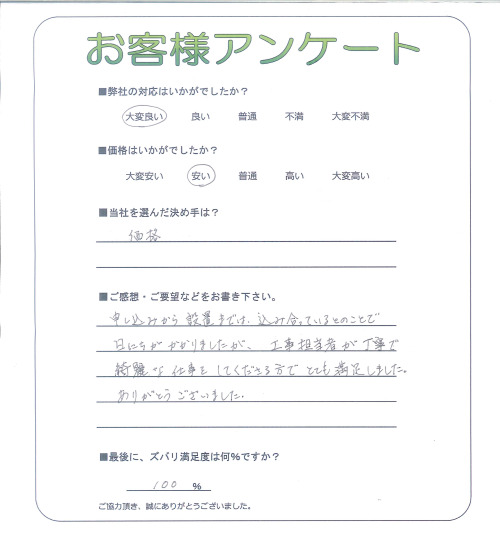 お客様アンケート
■弊社の対応はいかがでしたか?
大変良い 良い 普通 不満 大変不満
■価格はいかがでしたか?
大変安い 安い 普通 高い 大変高い
■当社を選んだ決め手は?
価格
■ご感想・ご要望などをお書き下さい。
申し込みから設置までは、込み合っているとのことで
日にちがかかりましたが、工事担当者が丁寧で
綺麗な仕事をしてくださる方でとても満足しました。
ありがとうございました。
■最後に、ズバリ満足度は何%ですか?
100 %
ご協力頂き、誠にありがとうございました。